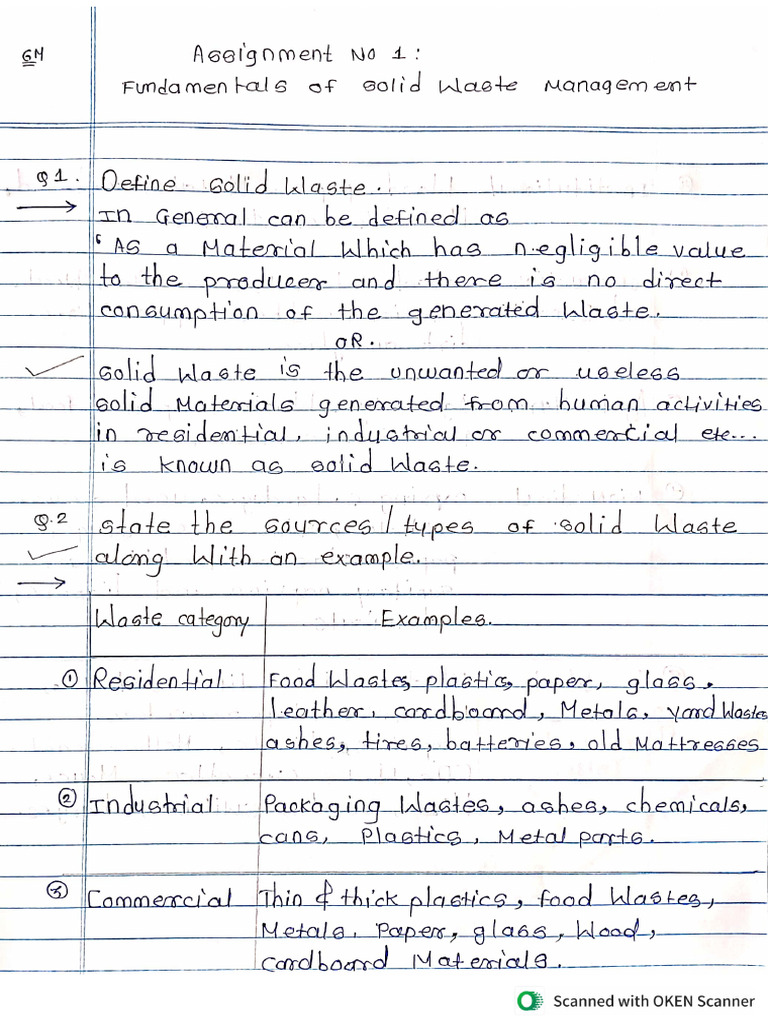 6M
Assignment No 1:
Fundamentals of Solid Waste Management
Q1. Define Solid Waste.
→ In General can be defined as
‘As a Material Which has negligible value
to the producer and there is no direct
consumption of the generated Waste.
OR.
Solid Waste is the unwanted or useless
Solid Materials generated from human activities
in residential, industrial or commercial etc...
is known as Solid Waste.
Q.2 State the sources/types of Solid Waste
along With an example.
→
Waste category Examples.
① Residential Food Wastes, plastics, paper, glass,
leather, cardboard, Metals, yard Wastes
ashes, tires, batteries, old Mattresses
② Industrial Packaging Wastes, ashes, chemicals,
cans, Plastics, Metal parts.
③ Commercial Thin & thick plastics, food Wastes,
Metals, Paper, glass, Wood,
cardboard Materials.
Scanned with OKEN Scanner